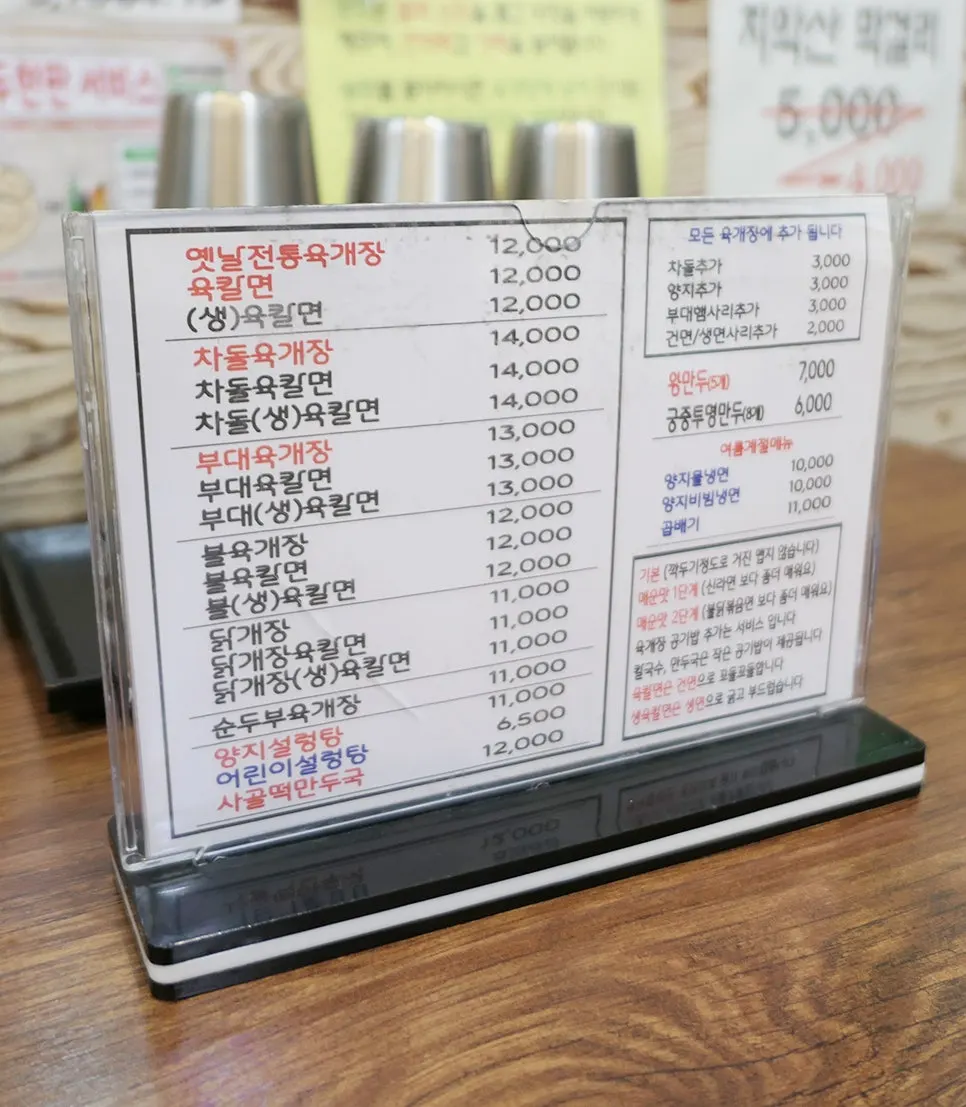 두한판 서비스
지악산 막걸리
5,000
4,000
옛날전통육개장 12,000
육칼면 12,000
(생)육칼면 12,000
차돌육개장 14,000
차돌육칼면 14,000
차돌(생)육칼면 14,000
부대육개장 13,000
부대육칼면 13,000
부대(생)육칼면 13,000
불육개장 12,000
불육칼면 12,000
불(생)육칼면 12,000
닭개장 11,000
닭개장육칼면 11,000
닭개장(생)육칼면 11,000
순두부육개장 11,000
양지설렁탕 11,000
어린이설렁탕 6,500
사골떡만두국 12,000
모든 육개장에 추가 됩니다
차돌추가 3,000
양지추가 3,000
부대햄사리추가 3,000
건면/생면사리추가 2,000
왕만두(5개) 7,000
궁중투명만두(8개) 6,000
여름계절메뉴
양지물냉면 10,000
양지비빔냉면 10,000
곱배기 11,000
기본 (깍두기정도로 거진 맵지 않습니다)
매운맛 1단계 (신라면 보다 좀더 매워요)
매운맛 2단계 (불닭볶음면 보다 좀더 매워요)
육개장 공기밥 추가는 서비스 입니다
칼국수, 만두국은 작은 공기밥이 제공됩니다
육칼면은 건면으로 꼬들꼬들합니다
생육칼면은 생면으로 굵고 부드럽습니다